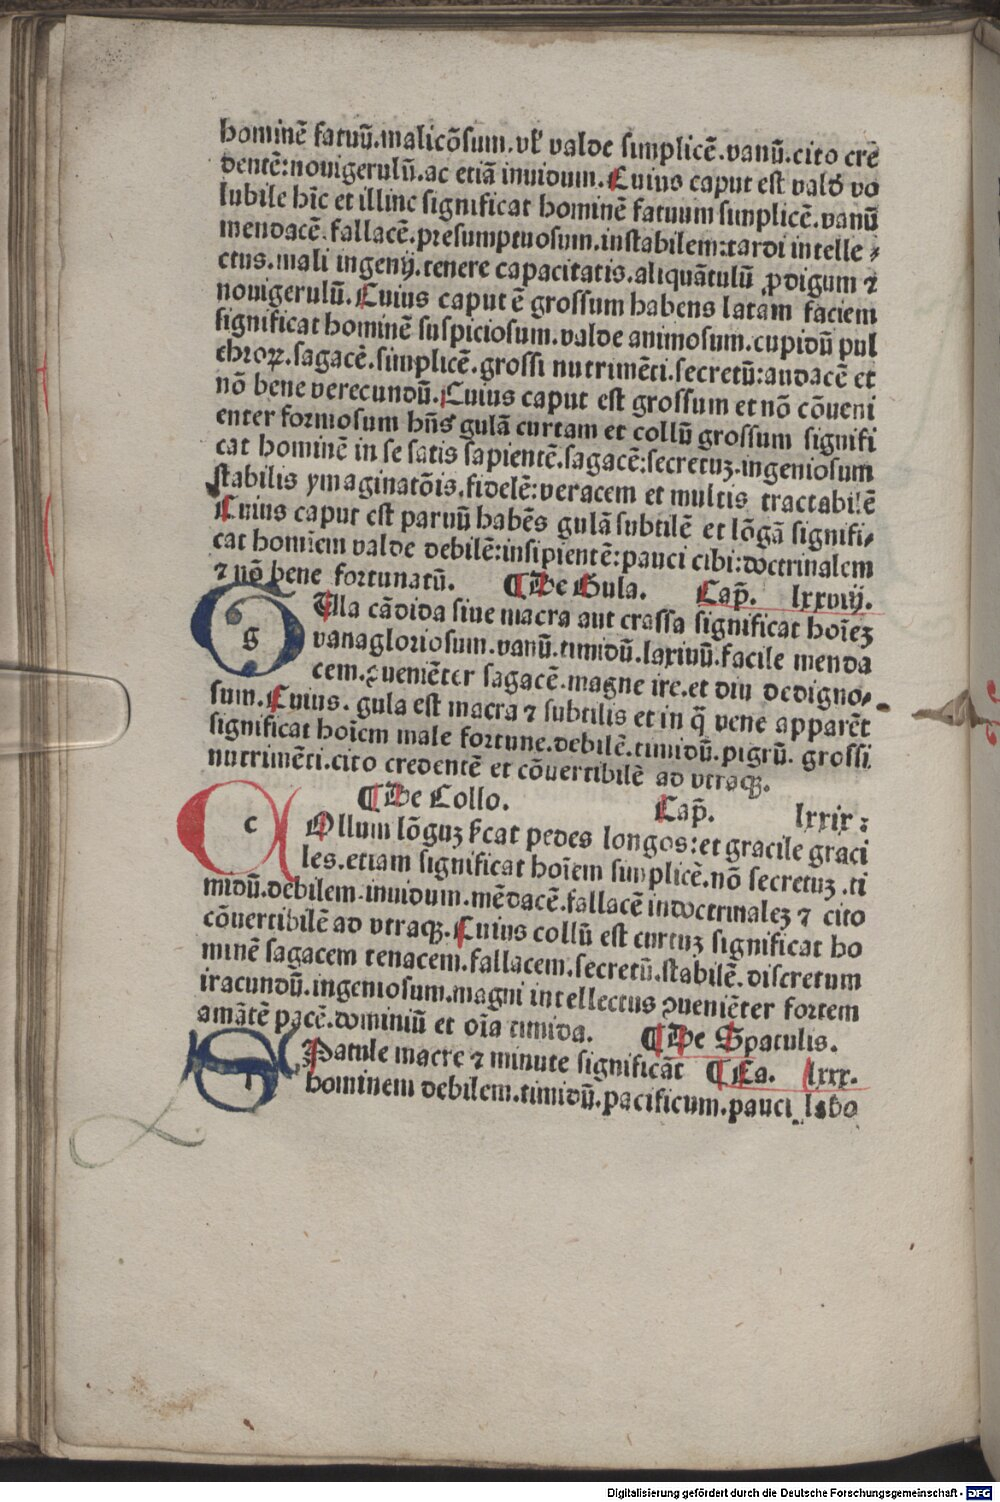 hominē fatuū.malicōsum.vĺ valde simplicē.vanū.cito crē
dentē:nouigerulū.ac etiā inuidum.Cuius caput est vald̕ vo
lubile hīc et illinc significat hominē fatuum simplicē.vanū
mendacē.fallacē.presumptuosum.instabilem:tardi intelle⸗
ctus.mali ingenij.tenere capacitatis.aliquātulū ꝓdigum ⁊
nouigerulū.Cuius caput ē grossum habens latam faciem
significat hominē suspiciosum.valde animosum.cupidū pul
chroꝝ.sagacē.simplicē.grossi nutrimēti.secretū:audacē et
nō bene verecundū.Cuius caput est grossum et nō cōueni
enter formosum hn̄s gulā curtam et collū grossum signifi
cat hominē in se satis sapientē.sagacē:secretuȝ.ingeniosum
stabilis ymaginatōis.fidelē:veracem et multis tractabilē
Cuius caput est paruū habēs gulā subtilē et lōgā signifi⸗
cat homīem valde debilē:insipientē:pauci cibi:doctrinalem
⁊ nō bene fortunatū. ¶De Gula. Cap̄. lxxviij.
g Vlla cādida siue macra aut crassa significat hoīeȝ
vanagloriosum.vanū.timidū.laxiuū.facile menda
cem.ꝯueniēter sagacē.magne ire.et diu dedigno⸗
sum.Cuius. gula est macra ⁊ subtilis et in q̄ vene apparēt
significat hoīem male fortune.debilē.timidū.pigrū. grossi
nutrimēti.cito credentē et cōuertibilē ad vtraqꝫ.
¶De Collo. Cap̄. lxxix:
c Ollum lōguȝ ſ̕cat pedes longos:et gracile graci
les.etiam significat hoīem simplicē.nō secretuȝ.ti
midū.debilem.inuidum.mēdacē.fallacē indoctrinaleȝ ⁊ cito
cōuertibilē ad vtraqꝫ.Cuius collū est curtuȝ significat ho
minē sagacem tenacem.fallacem.secretū.stabilē.discretum
iracundū.ingeniosum.magni intellectus ꝯueniēter fortem
amātē pacē.dominiū et oīa timida. ¶De Spatulis.
Patule macre ⁊ minute significāt ¶Ca. lxxx.
hominem debilem.timidū.pacificum.pauci labo
Digitalisierung gefördert durch die Deutsche Forschungsgemeinschaft - DFG